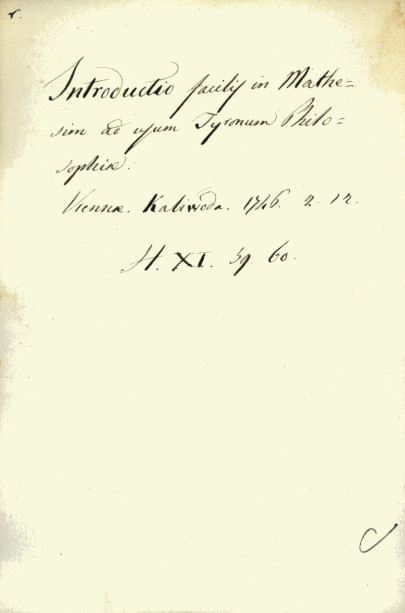 r.
Introductio facilis in Mathe=
sim ad usum Tyronum Philo=
sophiæ.
Viennæ. Kaliwoda. 1746. 2. 12.
H. XI. 59. 60.